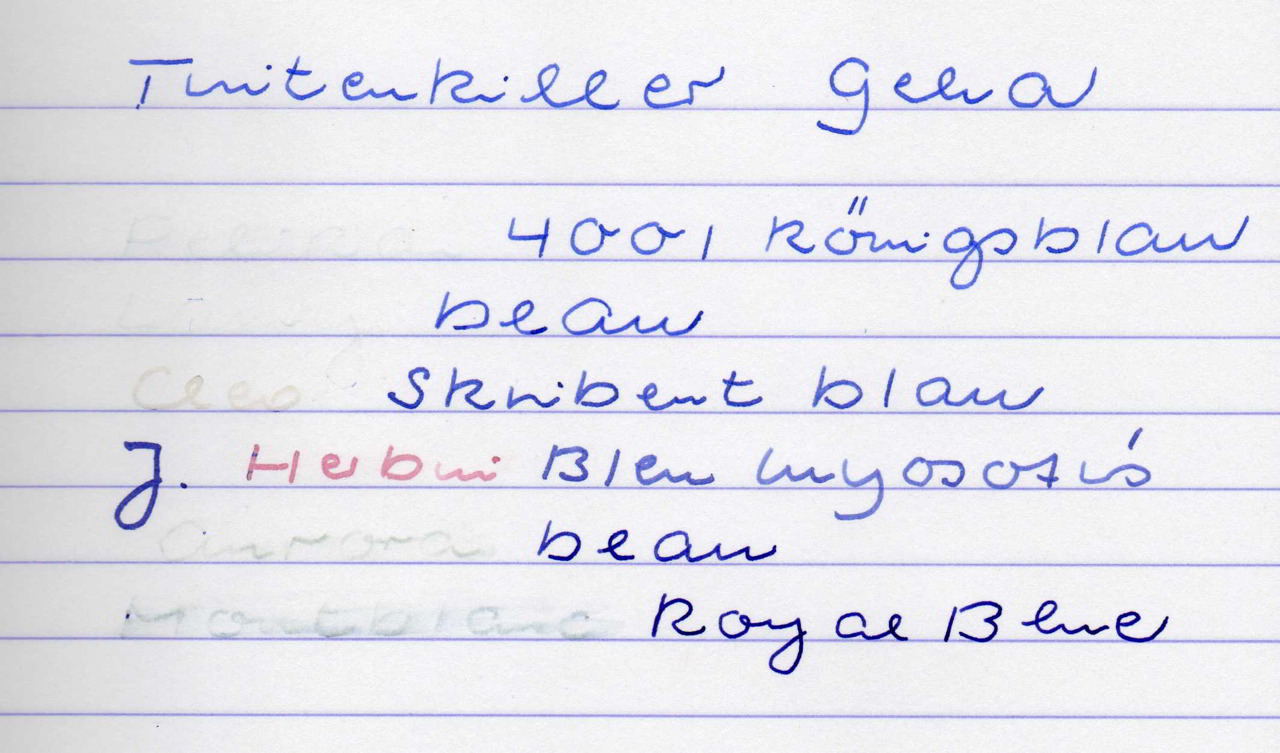 Tintenkiller Geha
Pelikan 4001 Königsblau
Lamy blau
Cleo Skribent blau
J. Herbin Bleu myosotis
Aurora blau
Montblanc Royal Blue